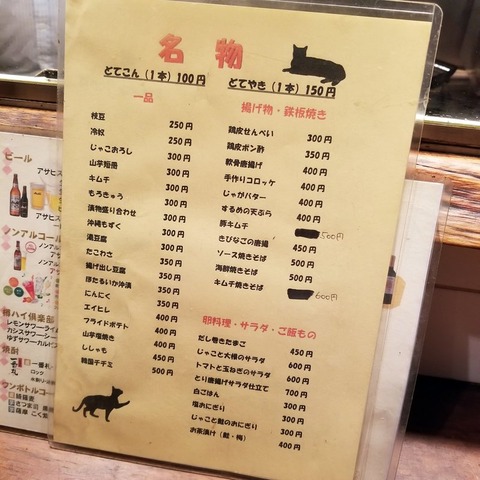 名物
どてこん（1本）100円 どてやき（1本）150円
一品
枝豆 250円
冷奴 250円
じゃこおろし 300円
山芋短冊 300円
キムチ 300円
もろきゅう 300円
漬物盛り合わせ 300円
沖縄もずく 300円
湯豆腐 350円
たこわさ 350円
揚げ出し豆腐 350円
ほたるいか沖漬 350円
にんにく 350円
エイヒレ 400円
フライドポテト 400円
山芋塩焼き 400円
ししゃも 450円
韓国チヂミ 500円
揚げ物・鉄板焼き
鶏皮せんべい 300円
鶏皮ポン酢 350円
軟骨唐揚げ 400円
手作りコロッケ 400円
じゃがバター 400円
するめの天ぷら 400円
豚キムチ 500円
きびなごの唐揚 450円
ソース焼きそば 500円
海鮮焼きそば 500円
キムチ焼きそば 600円
卵料理・サラダ・ご飯もの
だし巻きたまご 450円
じゃこと大根のサラダ 600円
トマトと玉ねぎのサラダ 600円
とり唐揚げサラダ仕立て 700円
白ごはん 300円
塩おにぎり 300円
じゃこと鮭のおにぎり 300円
お茶漬け（鮭・梅） 400円
ビール
アサヒ
ノンアルコール
樽ハイ倶楽部
レモンサワー
カシスサワー
ゆずサワー
焼酎
ロック
ワンボトルコー